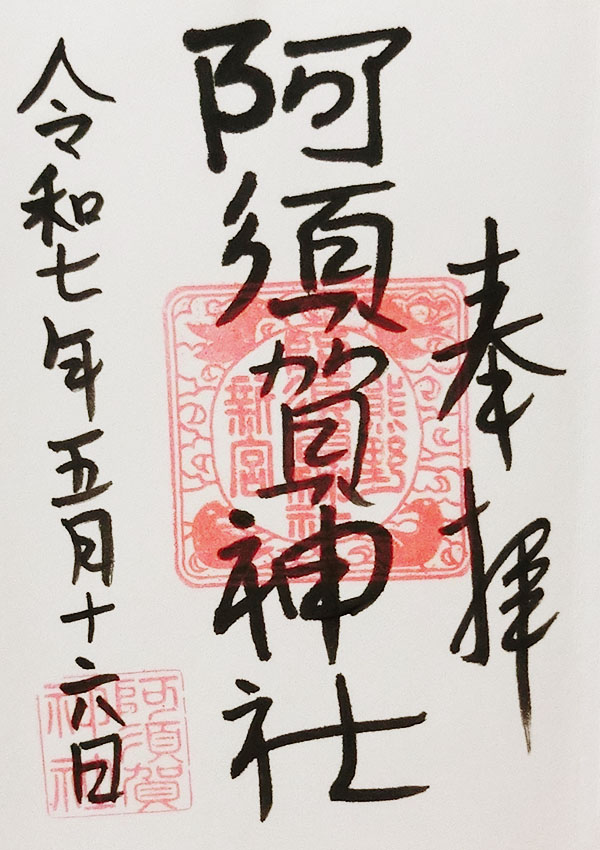 奉拝
阿須賀神社
令和七年五月十六日
熊野
阿須賀神社
新宮
阿須賀
神社